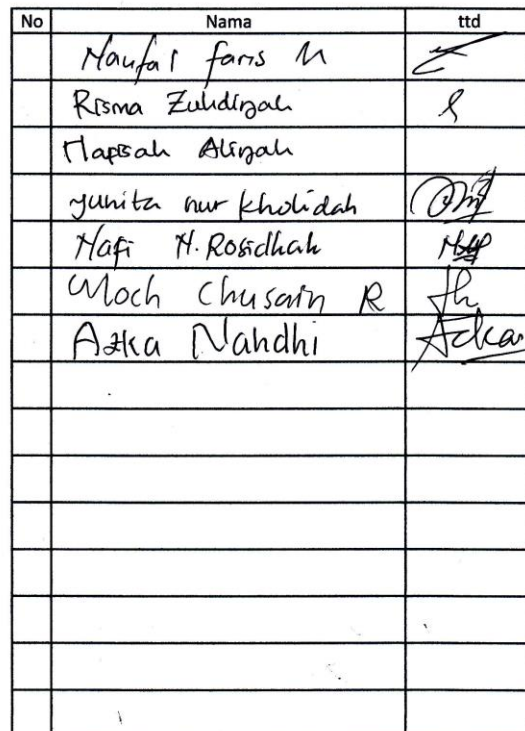 No Nama ttd
Naufal faris M
Risma Zuhdiyah
Hapsah Aliyah
yunita nur kholidah
Nafi N. Rosidhah
Moch Chusain R
Azka Nahdhi Azka